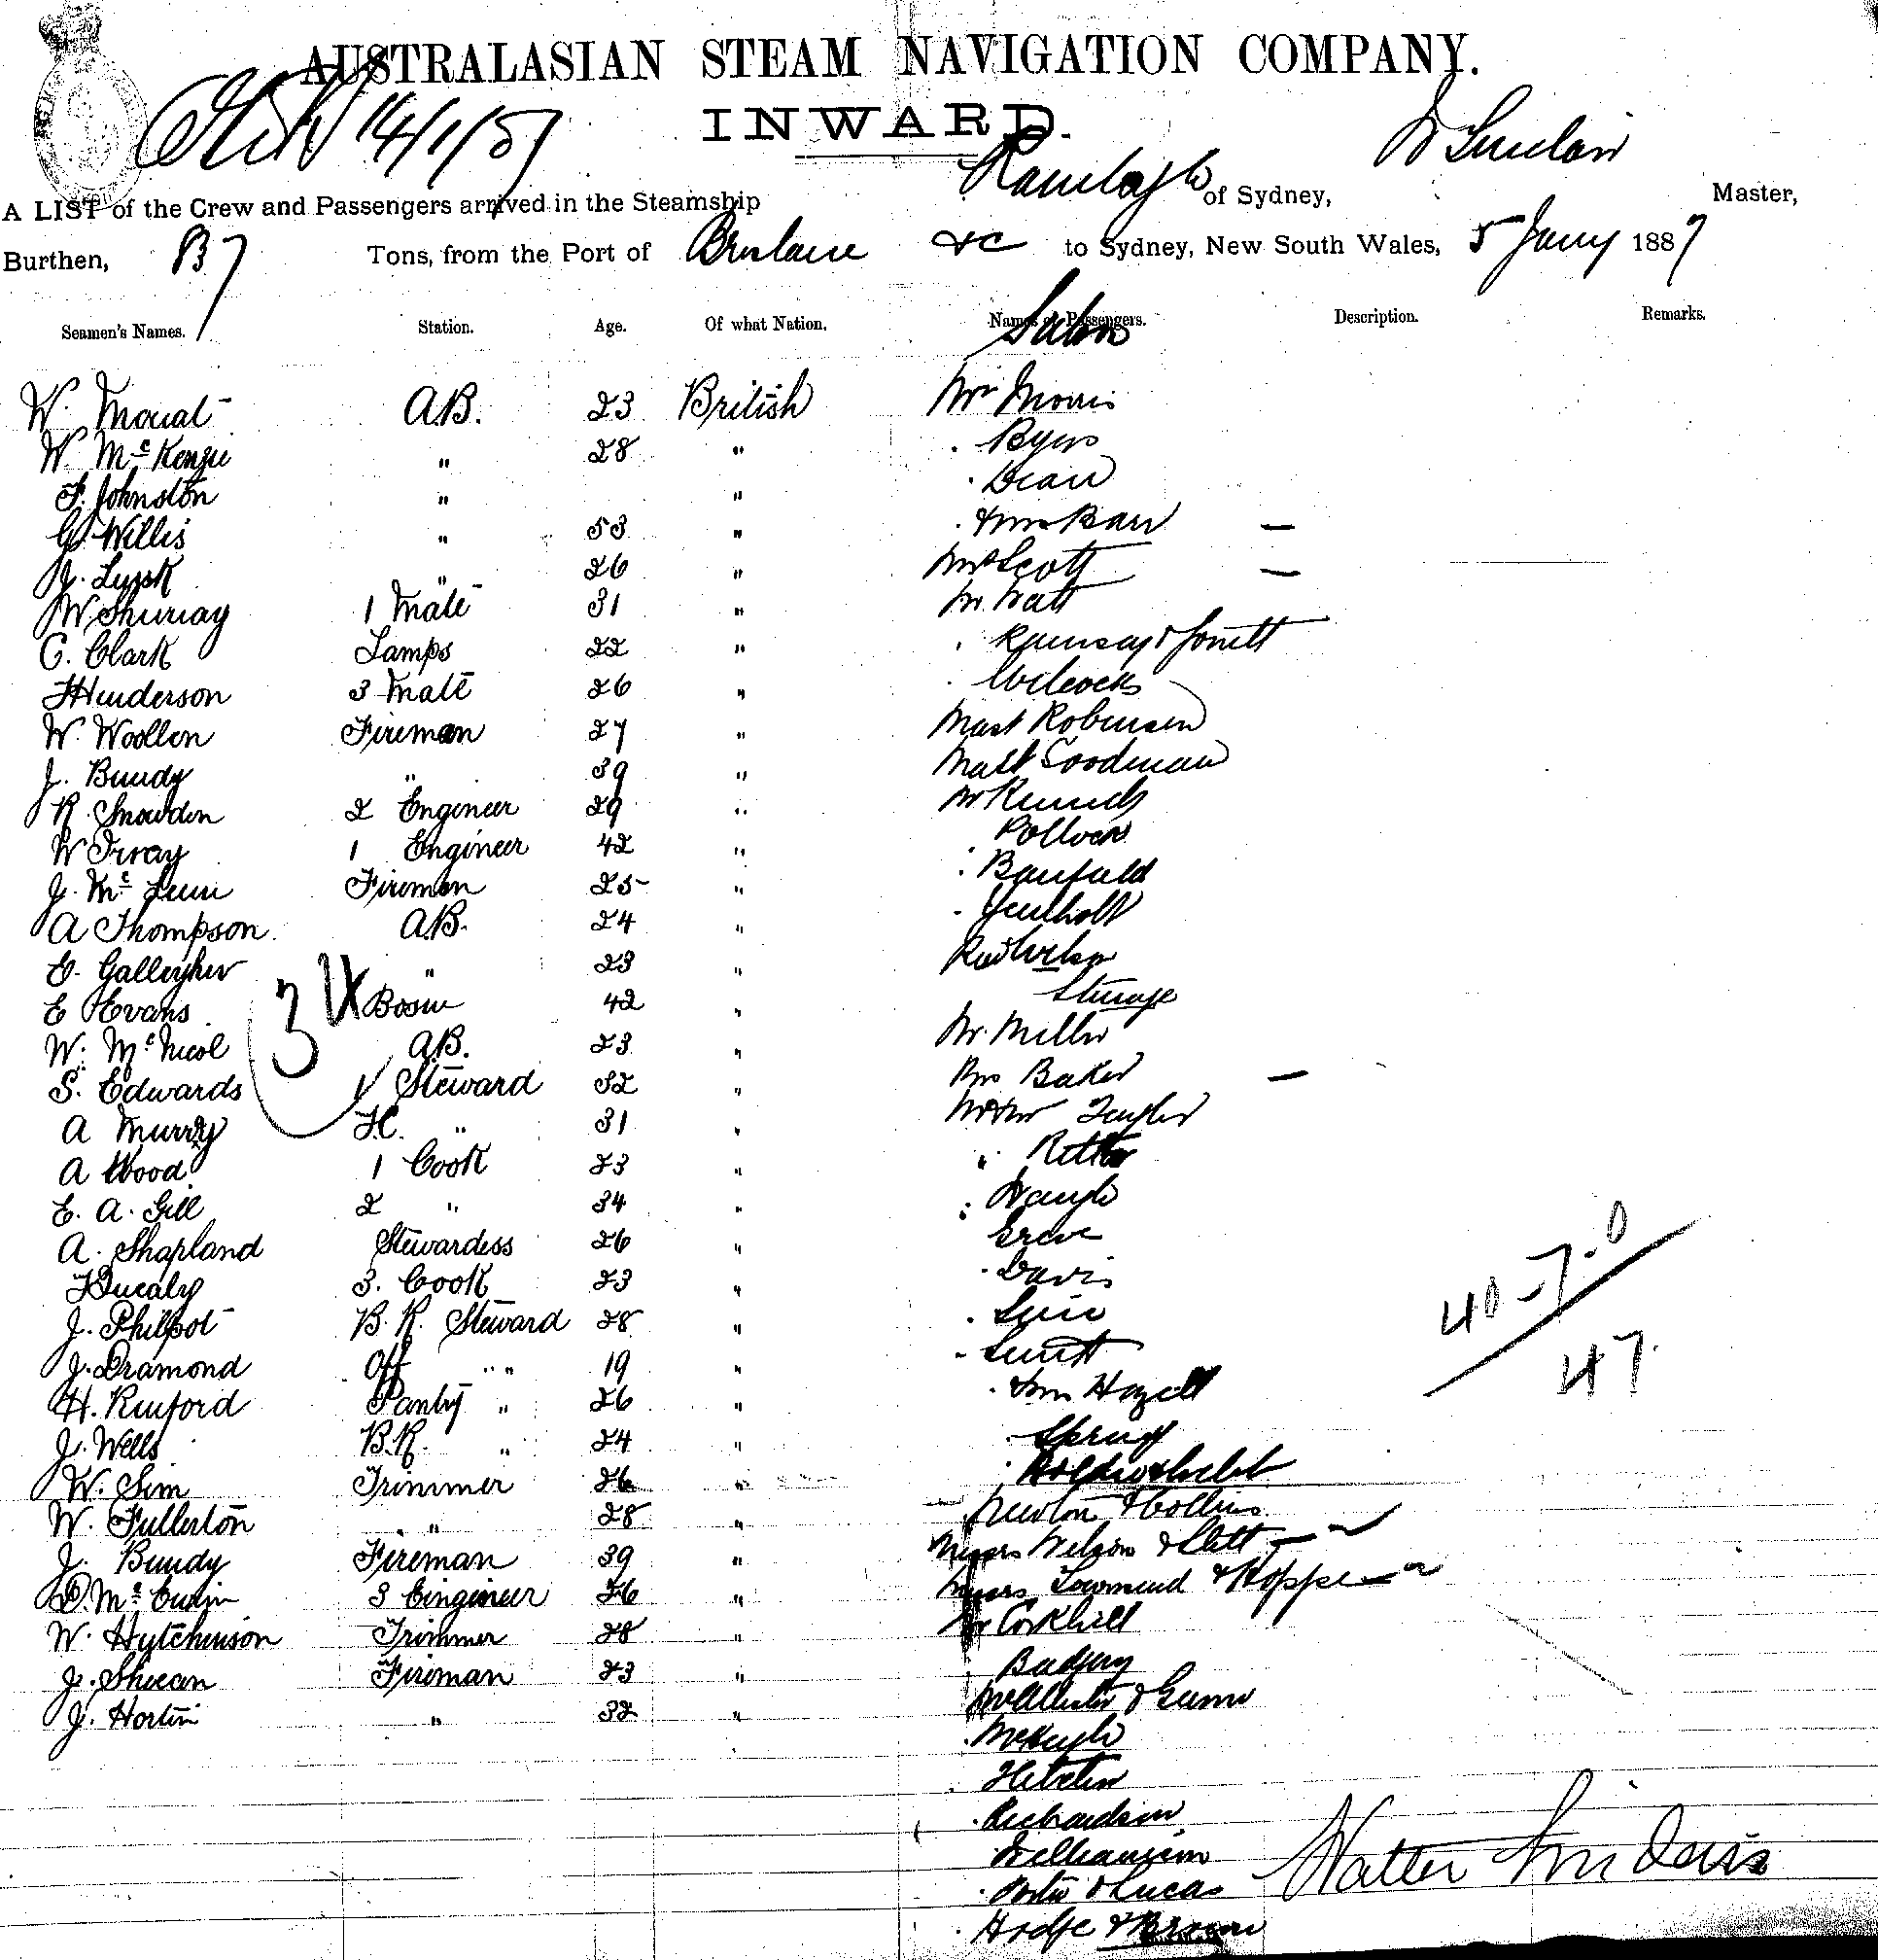 AUSTRALASIAN STEAM NAVIGATION COMPANY.
INWARD.
14/1/87
W Sinclair
A LIST of the Crew and Passengers arrived in the Steamship Ranelagh of Sydney, Master,
Burthen, Tons, from the Port of Brisbane &c to Sydney, New South Wales, 5 Jany 1887
Seamen's Names. Station. Age. Of what Nation. Names of Passengers. Description. Remarks.
Saloon
W. Mouat A.B. 23 British Mr Morris
W. McKenzie " 28 " . Byers
F. Johnston " " . Dean
G. Willis " 53 " . & Mrs Barr —
J. Lyzsk " 26 " Mrs Scott —
W. Shurray 1 Mate 31 " Mr. Watt
C. Clark Lamps 22 " . Ramsay &
J Henderson 3 Mate 26 " . Wilcocks
W. Woollen Fireman 27 " Mast Robinson
J. Bundy " 39 " Mast Goodman
R. Snowden 2 Engineer 29 " Mr
W Irvay 1 Engineer 42 " Pollock
J. Mc Fireman 25 " . Banfield
A Thompson A.B. 24 "
E. Gallegher " 23 " Rev Wilson
E Evans Bosun 42 " Steerage
W. McNicol A.B. 23 " Mr. Miller
S. Edwards 1 Steward 32 " Mrs Baker —
A Murry F.C. " 31 " Mr & Mrs Taylor
A Wood 1 Cook 23 "
E. A. Gill 2 " 34 " . Waugh
A. Shapland Stewardess 26 " Greve
3. Cook 23 " . Davis
J. Philpot B. R. Steward 28 "
J. Dramond Off " " 19 " . Smith
H. Rinford Pantry " 26 " . & Mrs Hazell
J. Wells B.R. " 24 "
W. Sim Trimmer 26 "
W. Fullerton " 28 " Newton & Collins
J. Bundy Fireman 39 " Messrs Wilson &
D. Mc 3 Eingineer 26 " Messrs Townsend &
W. Hytchinson Trimmer 28 " Mr Corkhill
J. Sheean Fireman 23 " Badgery
J. Hortin " 32 " McAllister & Gunn
McHugh
Richardson
Williamson
& Lucas
Hodge & Brown
3
40-7-0
47
Walter Sinclair